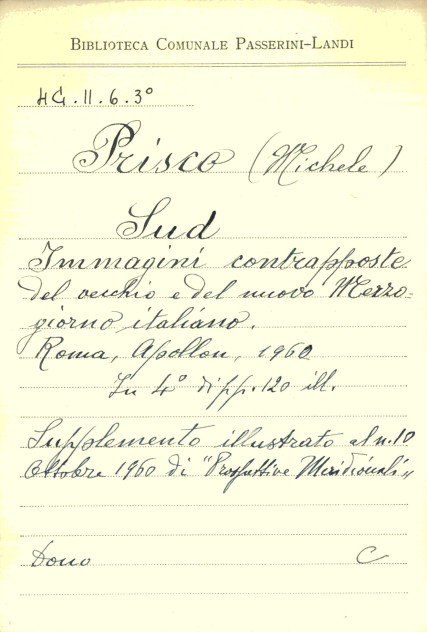 BIBLIOTECA COMUNALE PASSERINI-LANDI
4G.II.6.3°
Prisco (Michele)
Sud
Immagini contrapposte
del vecchio e del nuovo Mezzo-
giorno italiano.
Roma, Apollon, 1960
In 4° di pp. 120 ill.
Supplemento illustrato al n. 10
Ottobre 1960 di "Prospettive Meridionali"
Dono C